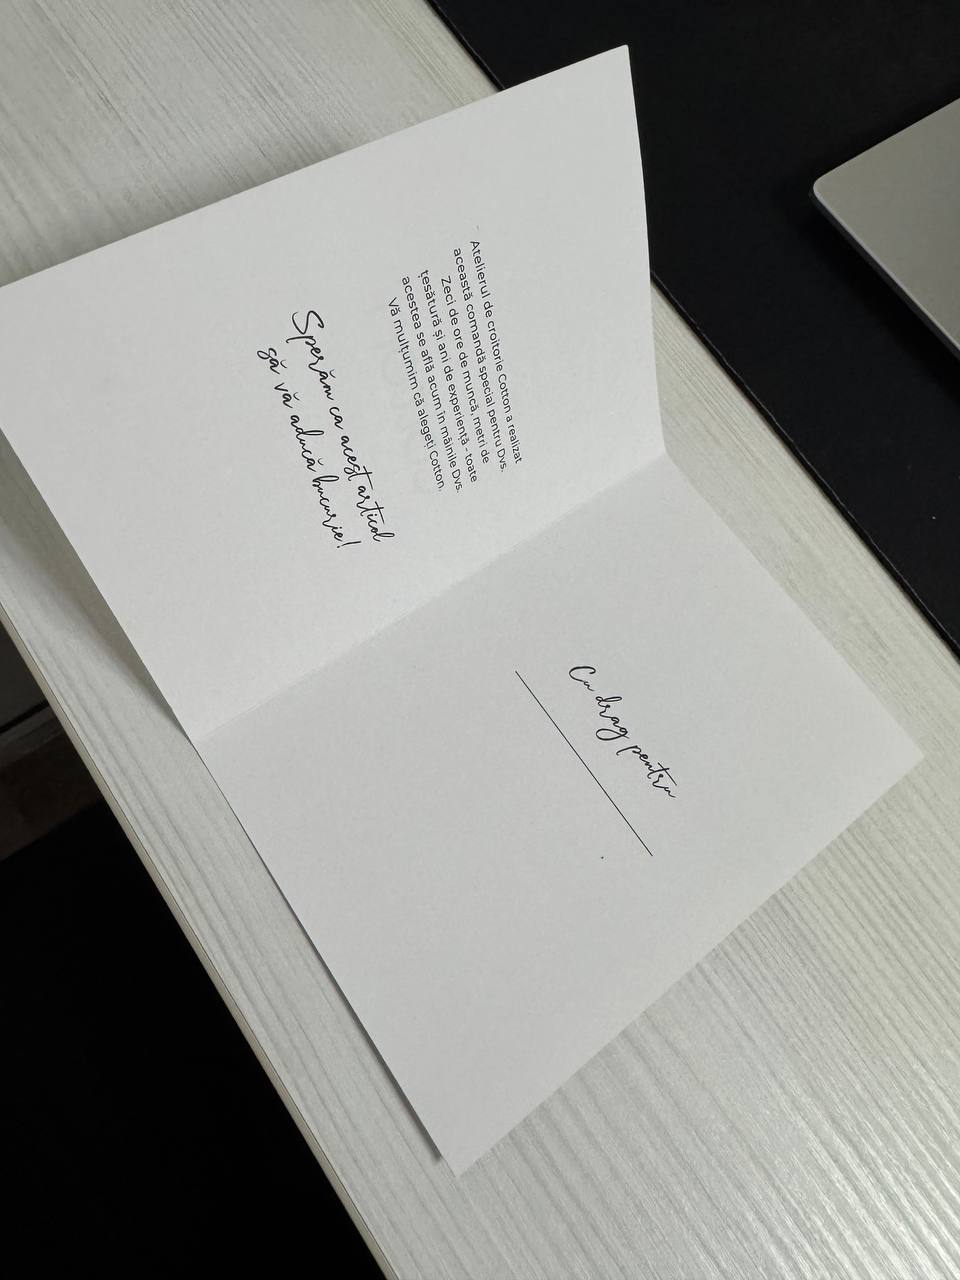 Atelierul de croitorie Cotton a realizat
această comandă special pentru Dvs.
Zeci de ore de muncă, metri de
țesătură și ani de experiență - toate
acestea se află acum în mâinile Dvs.
Vă mulțumim că alegeți Cotton.
Sperăm ca acest articol
să vă aducă bucurie!
Cu drag pentru